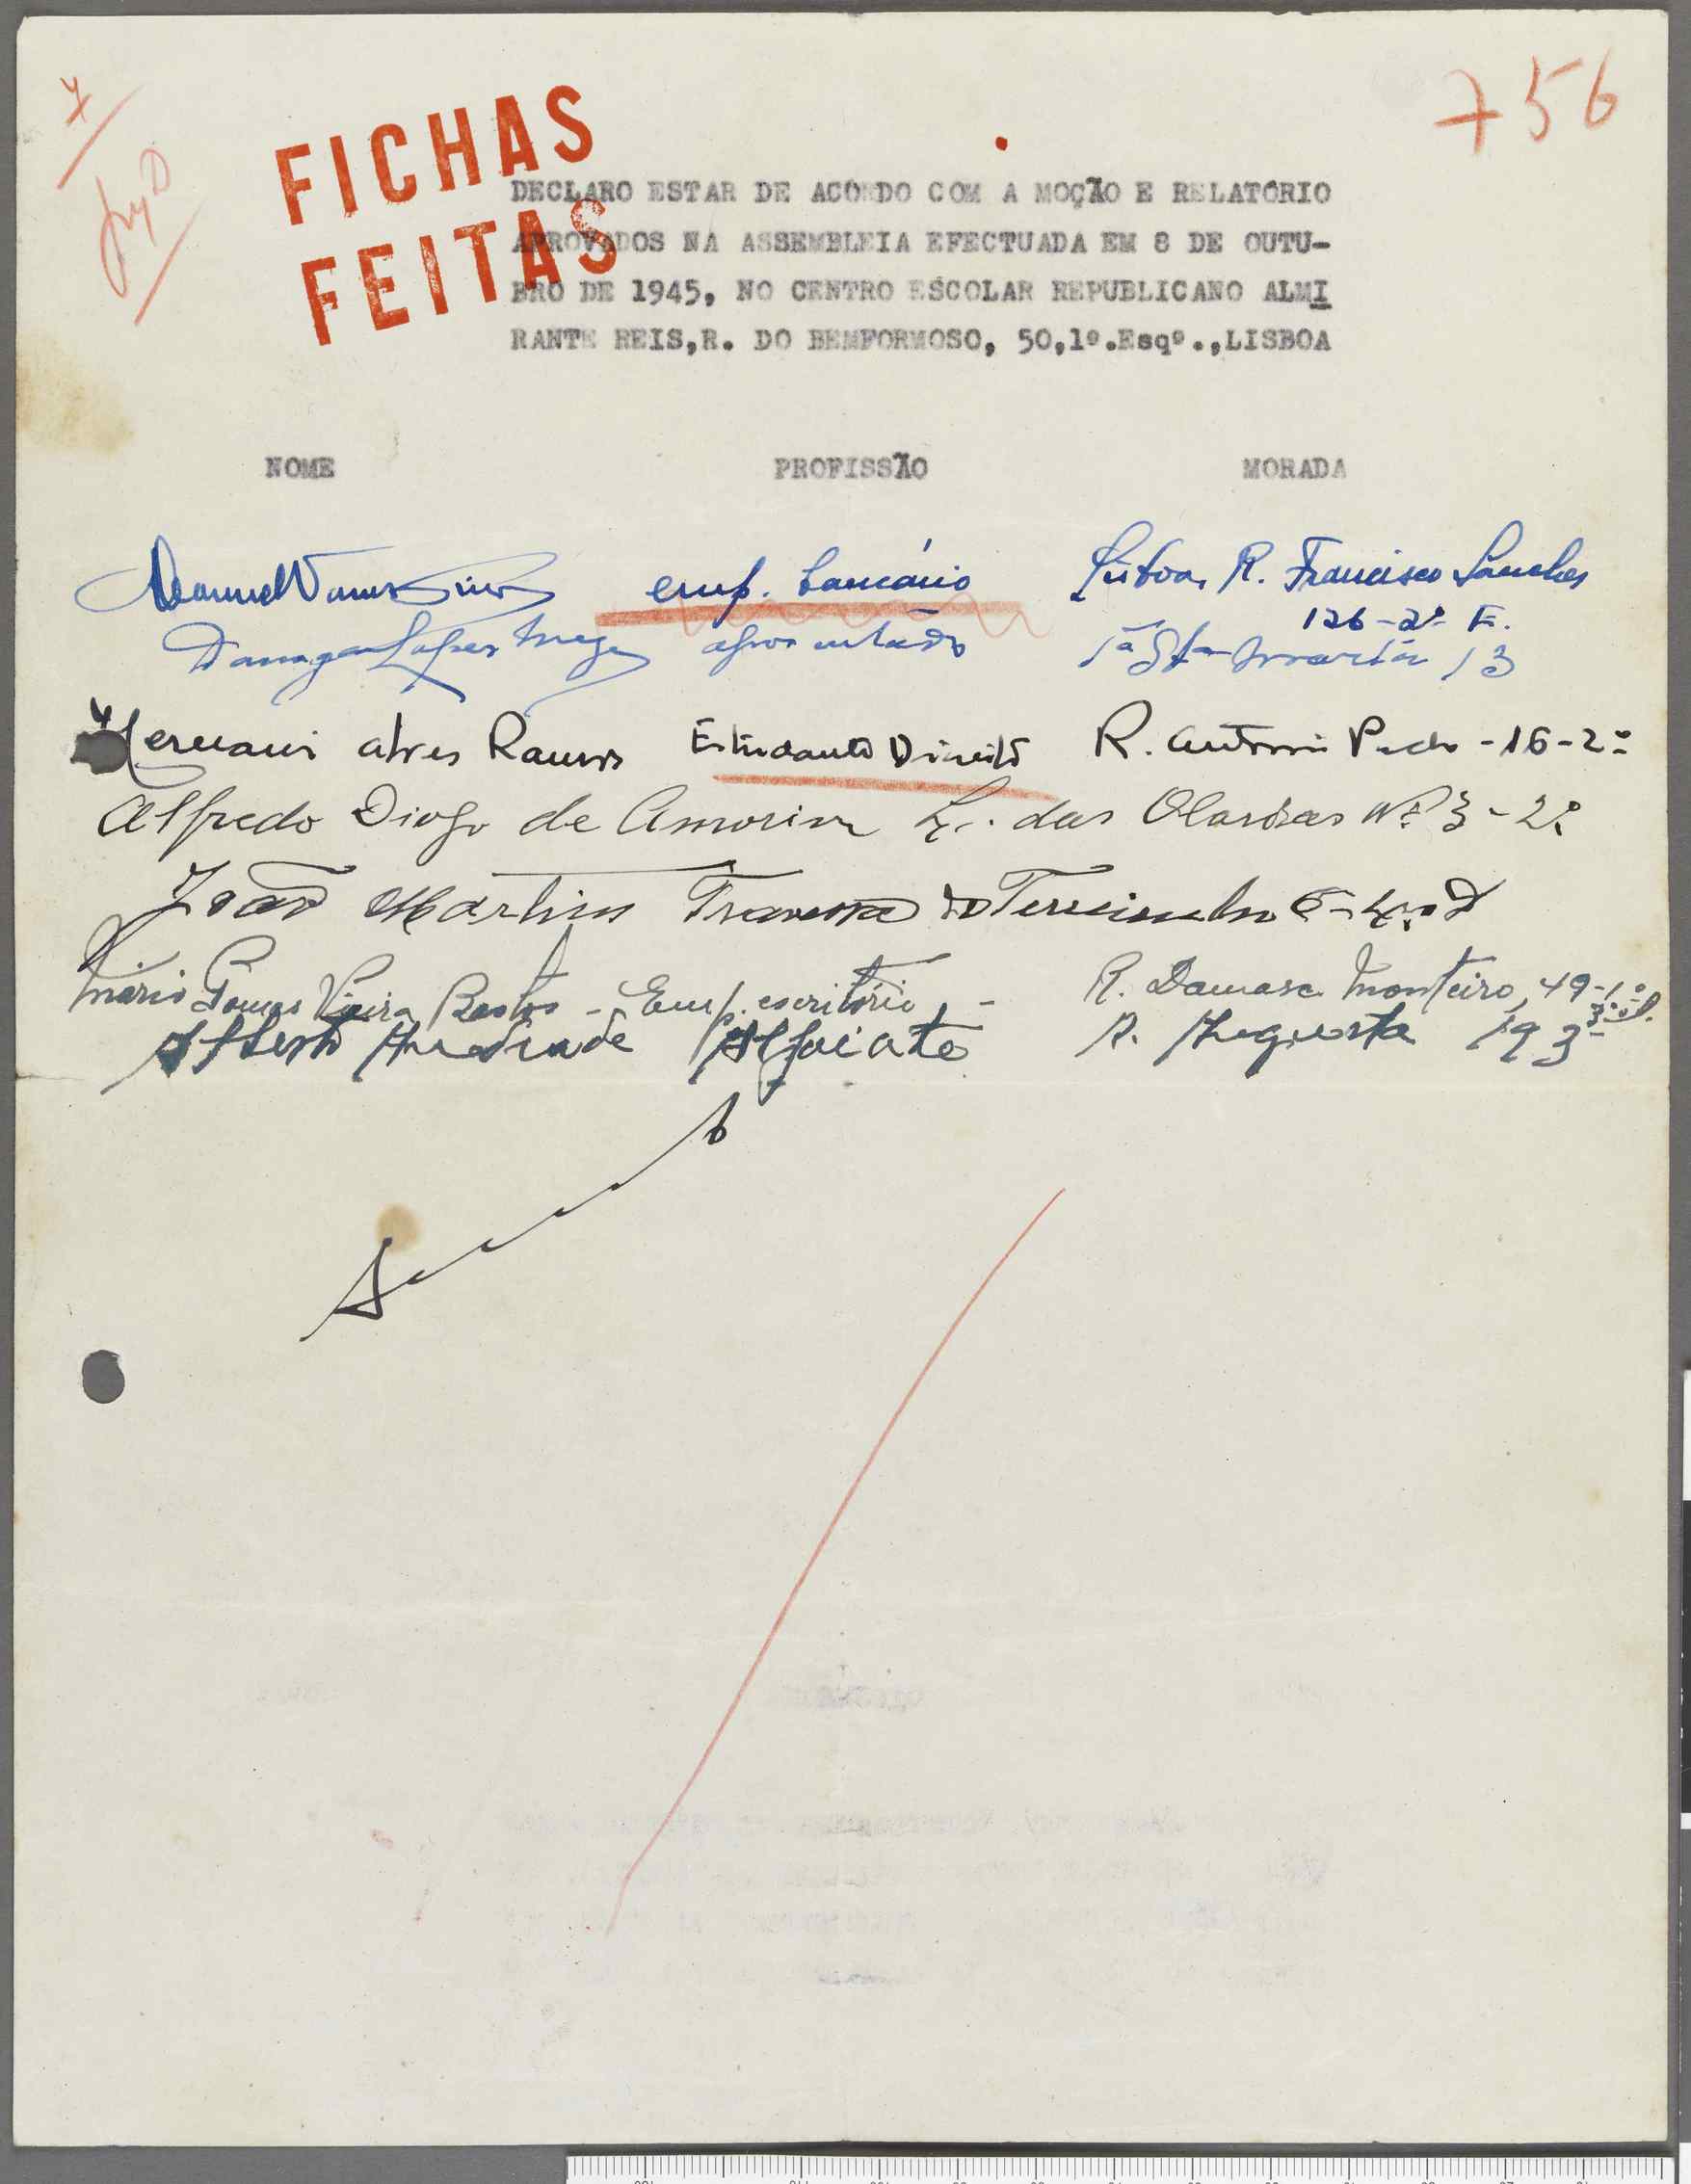 756
7
FICHAS
FEITAS
DECLARO ESTAR DE ACÔRDO COM A MOÇÃO E RELATÓRIO
APROVADOS NA ASSEMBLEIA EFECTUADA EM 8 DE OUTU-
BRO DE 1945, NO CENTRO ESCOLAR REPUBLICANO ALMI
RANTE REIS,R. DO BEMFORMOSO, 50,1º.Esqº.,LISBOA
NOME PROFISSÃO MORADA
Manuel emp. bancário Lisboa, R. Francisco Sanches
126-2º E.
Lopes aposentado Stª Marta 13
Hernani Alves Ramos Estudante Direito R. Antonio Pedro - 16-2º
Alfredo Diogo de Amorim L. das Olarias Nº 3-2º
João Martins Travessa do Terreirinho 6-4º D
Mário Gomes Vieira Bastos - Emp. escritório - R. Damasc. Monteiro, 49-1º
Alberto Andrade Alfaiate R. Augusta 193 3º